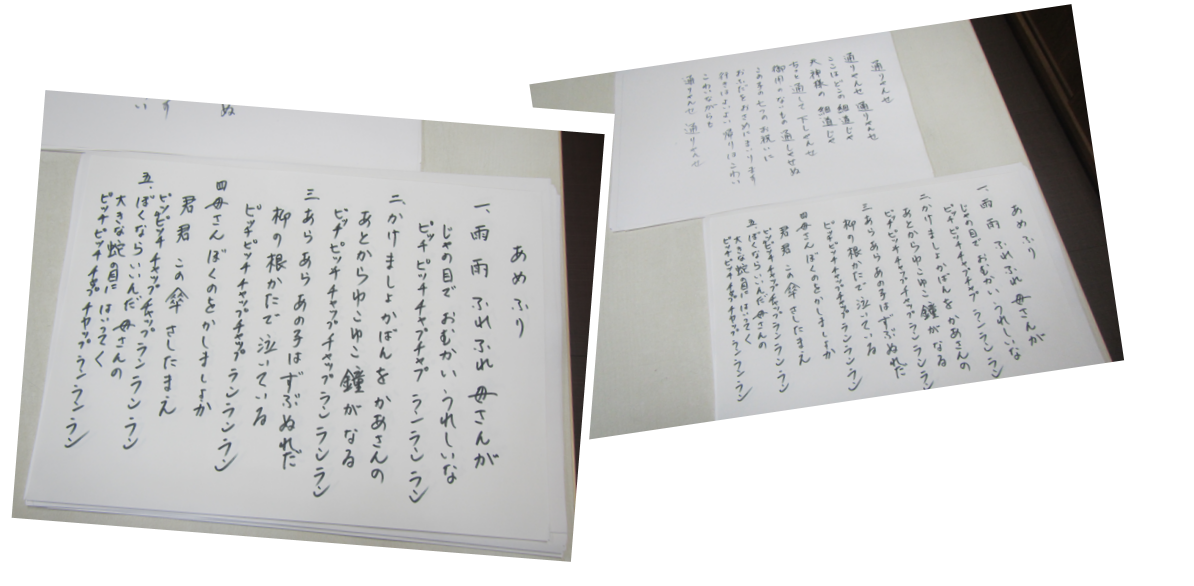 あめふり
一、雨雨ふれふれ母さんが
じゃの目でおむかいうれしいな
ピッチピッチチャプチャプランランラン
二、かけましょかばんをかあさんの
あとからゆこゆこ鐘がなる
ピッチピッチチャップチャップランランラン
三、あらあらあの子はずぶぬれだ
柳の根かたで泣いている
ピッチピッチチャップチャップランランラン
四、母さんぼくのをかしましょか
君君この傘さしたまえ
ピッチピッチチャップチャップランランラン
五、ぼくならいいんだ母さんの
大きな蛇の目にはいってく
ピッチピッチチャップチャップランランラン
通りゃんせ
通りゃんせ通りゃんせ
ここはどこの細道じゃ
天神様の細道じゃ
ちっと通して下しゃんせ
御用のないもの通しゃせぬ
この子の七つのお祝いに
おふだをおさめにまいります
行きはよいよい帰りはこわい
こわいながらも
通りゃんせ通りゃんせ
あめふり
一、雨雨ふれふれ母さんが
じゃの目でおむかいうれしいな
ピッチピッチチャプチャプランランラン
二、かけましょかばんをかあさんの
あとからゆこゆこ鐘がなる
ピッチピッチチャップチャップランランラン
三、あらあらあの子はずぶぬれだ
柳の根かたで泣いている
ピッチピッチチャップチャップランランラン
四、母さんぼくのをかしましょか
君君この傘さしたまえ
ピッチピッチチャップチャップランランラン
五、ぼくならいいんだ母さんの
大きな蛇の目にはいってく
ピッチピッチチャップチャップランランラン